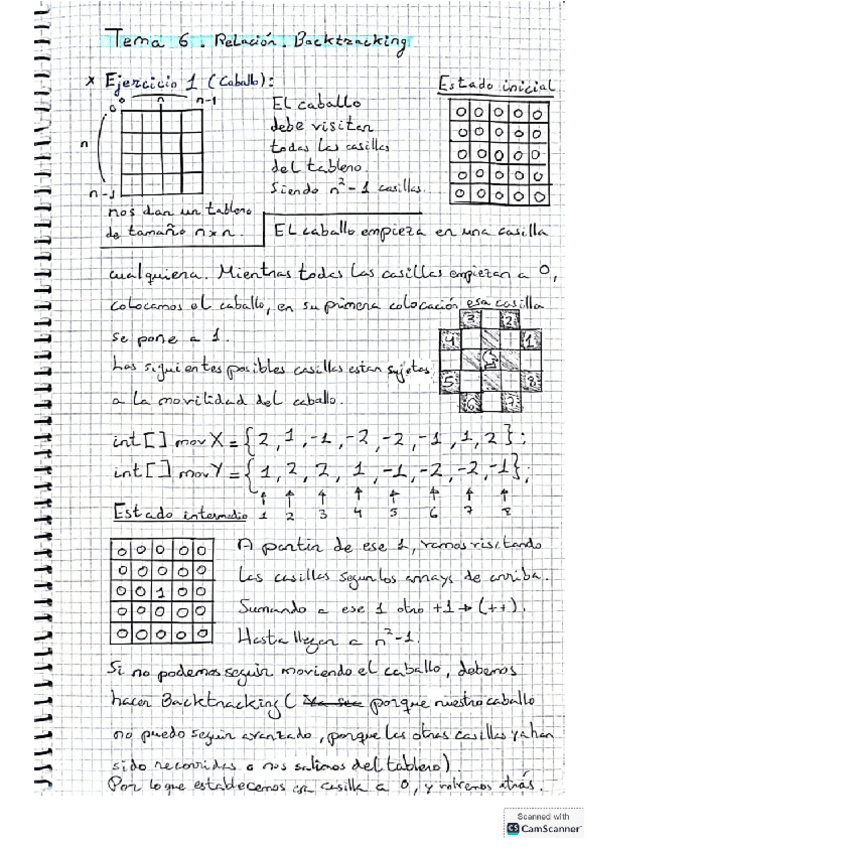 Tema 6. Relación. Backtracking
x Ejercicio 1 (Caballo):
0 n n-1
0
n
n-1
nos dan un tablero
de tamaño nxn.
El caballo
debe visitar
todas las casillas
del tablero.
Siendo n²-1 casillas.
Estado inicial
0 0 0 0 0
0 0 0 0 0
0 0 0 0 0
0 0 0 0 0
0 0 0 0 0
El caballo empieza en una casilla
cualquiera. Mientras todas las casillas empiezan a 0,
colocamos el caballo, en su primera colocación esa casilla
se pone a 1.
Las siguientes posibles casillas estan sujetas
a la movilidad del caballo.
3 2
4 1
5 8
6 7
int[] movX = {2, 1, -1, -2, -2, -1, 1, 2};
int[] movY = {1, 2, 2, 1, -1, -2, -2, -1};
↑ ↑ ↑ ↑ ↑ ↑ ↑ ↑
Estado intermedio 1 2 3 4 5 6 7 8
0 0 0 0 0
0 0 0 0 0
0 0 1 0 0
0 0 0 0 0
0 0 0 0 0
A partir de ese 1, vamos visitando
las casillas segun los arrays de arriba.
Sumando a ese 1 otro +1 → (++).
Hasta llegar a n²-1.
Si no podemos seguir moviendo el caballo, debemos
hacer Backtracking ( porque nuestro caballo
no puedo seguir avanzado, porque las otras casillas ya han
sido recorridas o nos salimos del tablero)
Por lo que establecemos casilla a 0, y volvemos atrás.
Scanned with
CS CamScanner